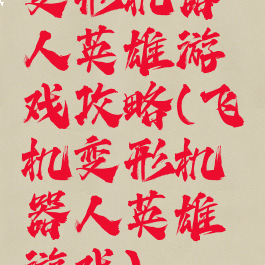 变形机器
人英雄游
戏攻略(飞
机变形机
器人英雄
游戏)